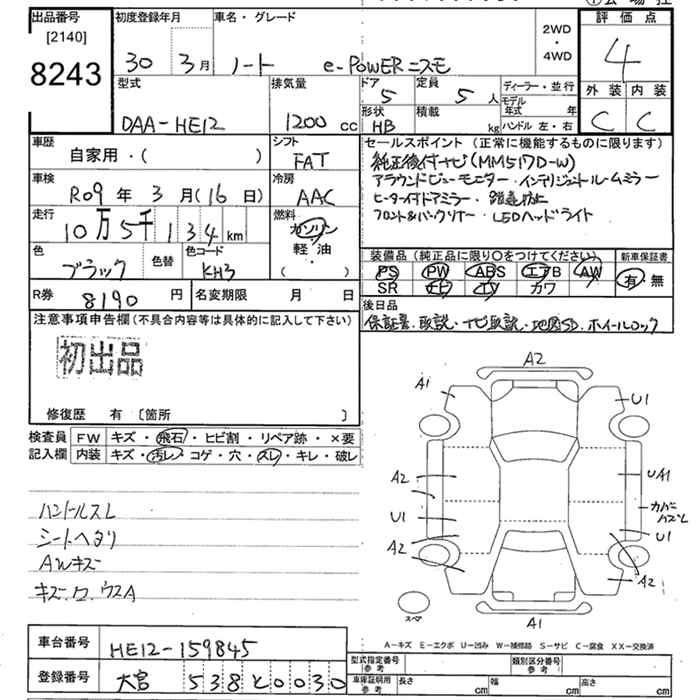 出品番号
[2140]
8243
初度登録年月
30年 3月
車名・グレード
ノート e-POWER ニスモ
2WD
・
4WD
評価点
4
外装 内装
C C
型式
DAA-HE12
排気量
1200 cc
ドア
5
定員
5 人
形状
HB
積載
kg
ディーラー・並行
モデル年式 年
ハンドル 左・右
車歴
自家用・( )
シフト
FAT
車検
R09 年 3 月(16 日)
冷房
AAC
走行
10万5千134 km
燃料
ガソリン
軽・油
( )
色
ブラック
色替
色コード
KH3
R券
8190 円
名変期限 月 日
セールスポイント (正常に機能するものに限ります)
純正後付ナビ(MM517D-W)
アラウンドビューモニター・インテリジェントルームミラー
ヒーター付ドアミラー・踏違防止
フロント&バックソナー・LEDヘッドライト
装備品 (純正品に限り○をつけてください)
PS PW ABS エアB AW
SR ナビ TV カワ
新車保証書
有・無
後日品
保証書・取説・ナビ取説・地図SD・ホイールロック
注意事項申告欄(不具合内容等は具体的に記入して下さい)
初出品
修復歴 有 〔箇所 〕
検査員記入欄
FW キズ・飛石・ヒビ割・リペア跡・×要
内装 キズ・汚レ・コゲ・穴・スレ・キレ・破レ
ハンドルスレ
シートヘタリ
AWキズ
キズ.ロ.ウスA
A2
A1
U1
A2
UA1
カバーハズレ
U1
U1
A2
A2
スペア
A1
A-キズ E-エクボ U-凹み W-補修跡 S-サビ C-腐食 XX-交換済
車台番号
HE12-159845
登録番号
大宮 538 と 0030
型式指定番号
参考
類別区分番号
参考
車庫証明用
参考
長さ cm
幅 cm
高さ cm